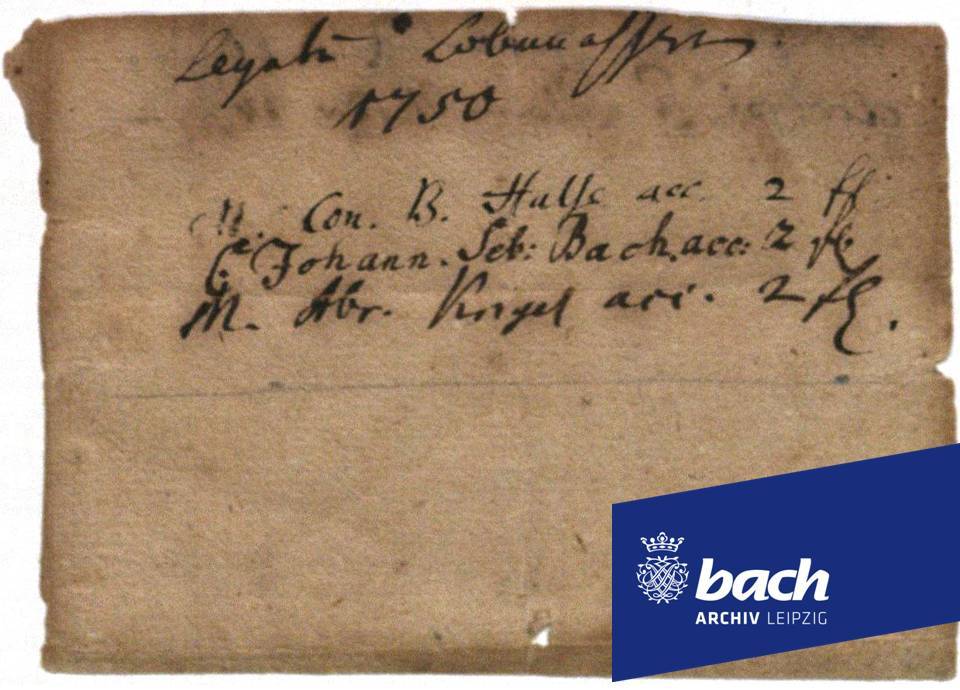 Legatu Lobwasser
1750
M. Con. B. Halse acc. 2 fl
C. Johann. Seb: Bach acc: 2 fl
M. Abr. Krigel acc. 2 fl.
bach
ARCHIV LEIPZIG